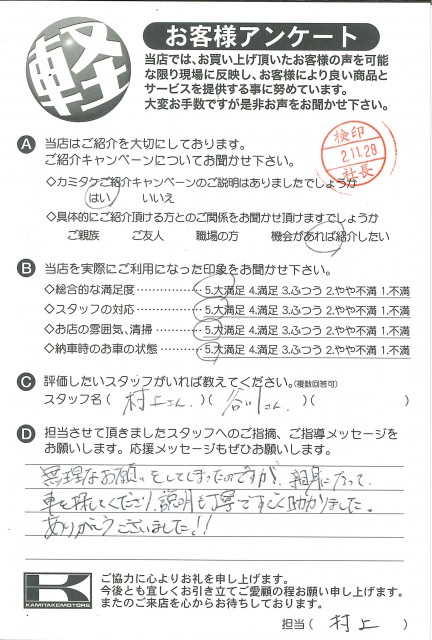 軽
お客様アンケート
当店では、お買い上げ頂いたお客様の声を可能
な限り現場に反映し、お客様により良い商品と
サービスを提供する事に努めています。
大変お手数ですが是非お声をお聞かせ下さい。
検印
2.11.28
社長
A 当店はご紹介を大切にしております。
ご紹介キャンペーンについてお聞かせ下さい。
◇カミタケご紹介キャンペーンのご説明はありましたでしょうか
はい いいえ
◇具体的にご紹介頂ける方とのご関係をお聞かせ頂けますでしょうか
ご親族 ご友人 職場の方 機会があれば紹介したい
B 当店を実際にご利用になった印象をお聞かせ下さい。
◇総合的な満足度………………5.大満足 4.満足 3.ふつう 2.やや不満 1.不満
◇スタッフの対応………………5.大満足 4.満足 3.ふつう 2.やや不満 1.不満
◇お店の雰囲気、清掃…………5.大満足 4.満足 3.ふつう 2.やや不満 1.不満
◇納車時のお車の状態…………5.大満足 4.満足 3.ふつう 2.やや不満 1.不満
C 評価したいスタッフがいれば教えてください。(複数回答可)
スタッフ名( 村上さん )( 谷川さん )( )
D 担当させて頂きましたスタッフへのご指摘、ご指導メッセージを
お願いします。応援メッセージもぜひお願いします。
無理なお願いをしてしまったのですが、親身になって
車を探してくださり、説明も丁寧ですごく助かりました。
ありがとうございました!!
KAMITAKEMOTORS
ご協力に心よりお礼を申し上げます。
今後とも宜しくお引き立てご愛顧の程お願い申し上げます。
またのご来店を心からお待ちしております。
担当( 村上 )